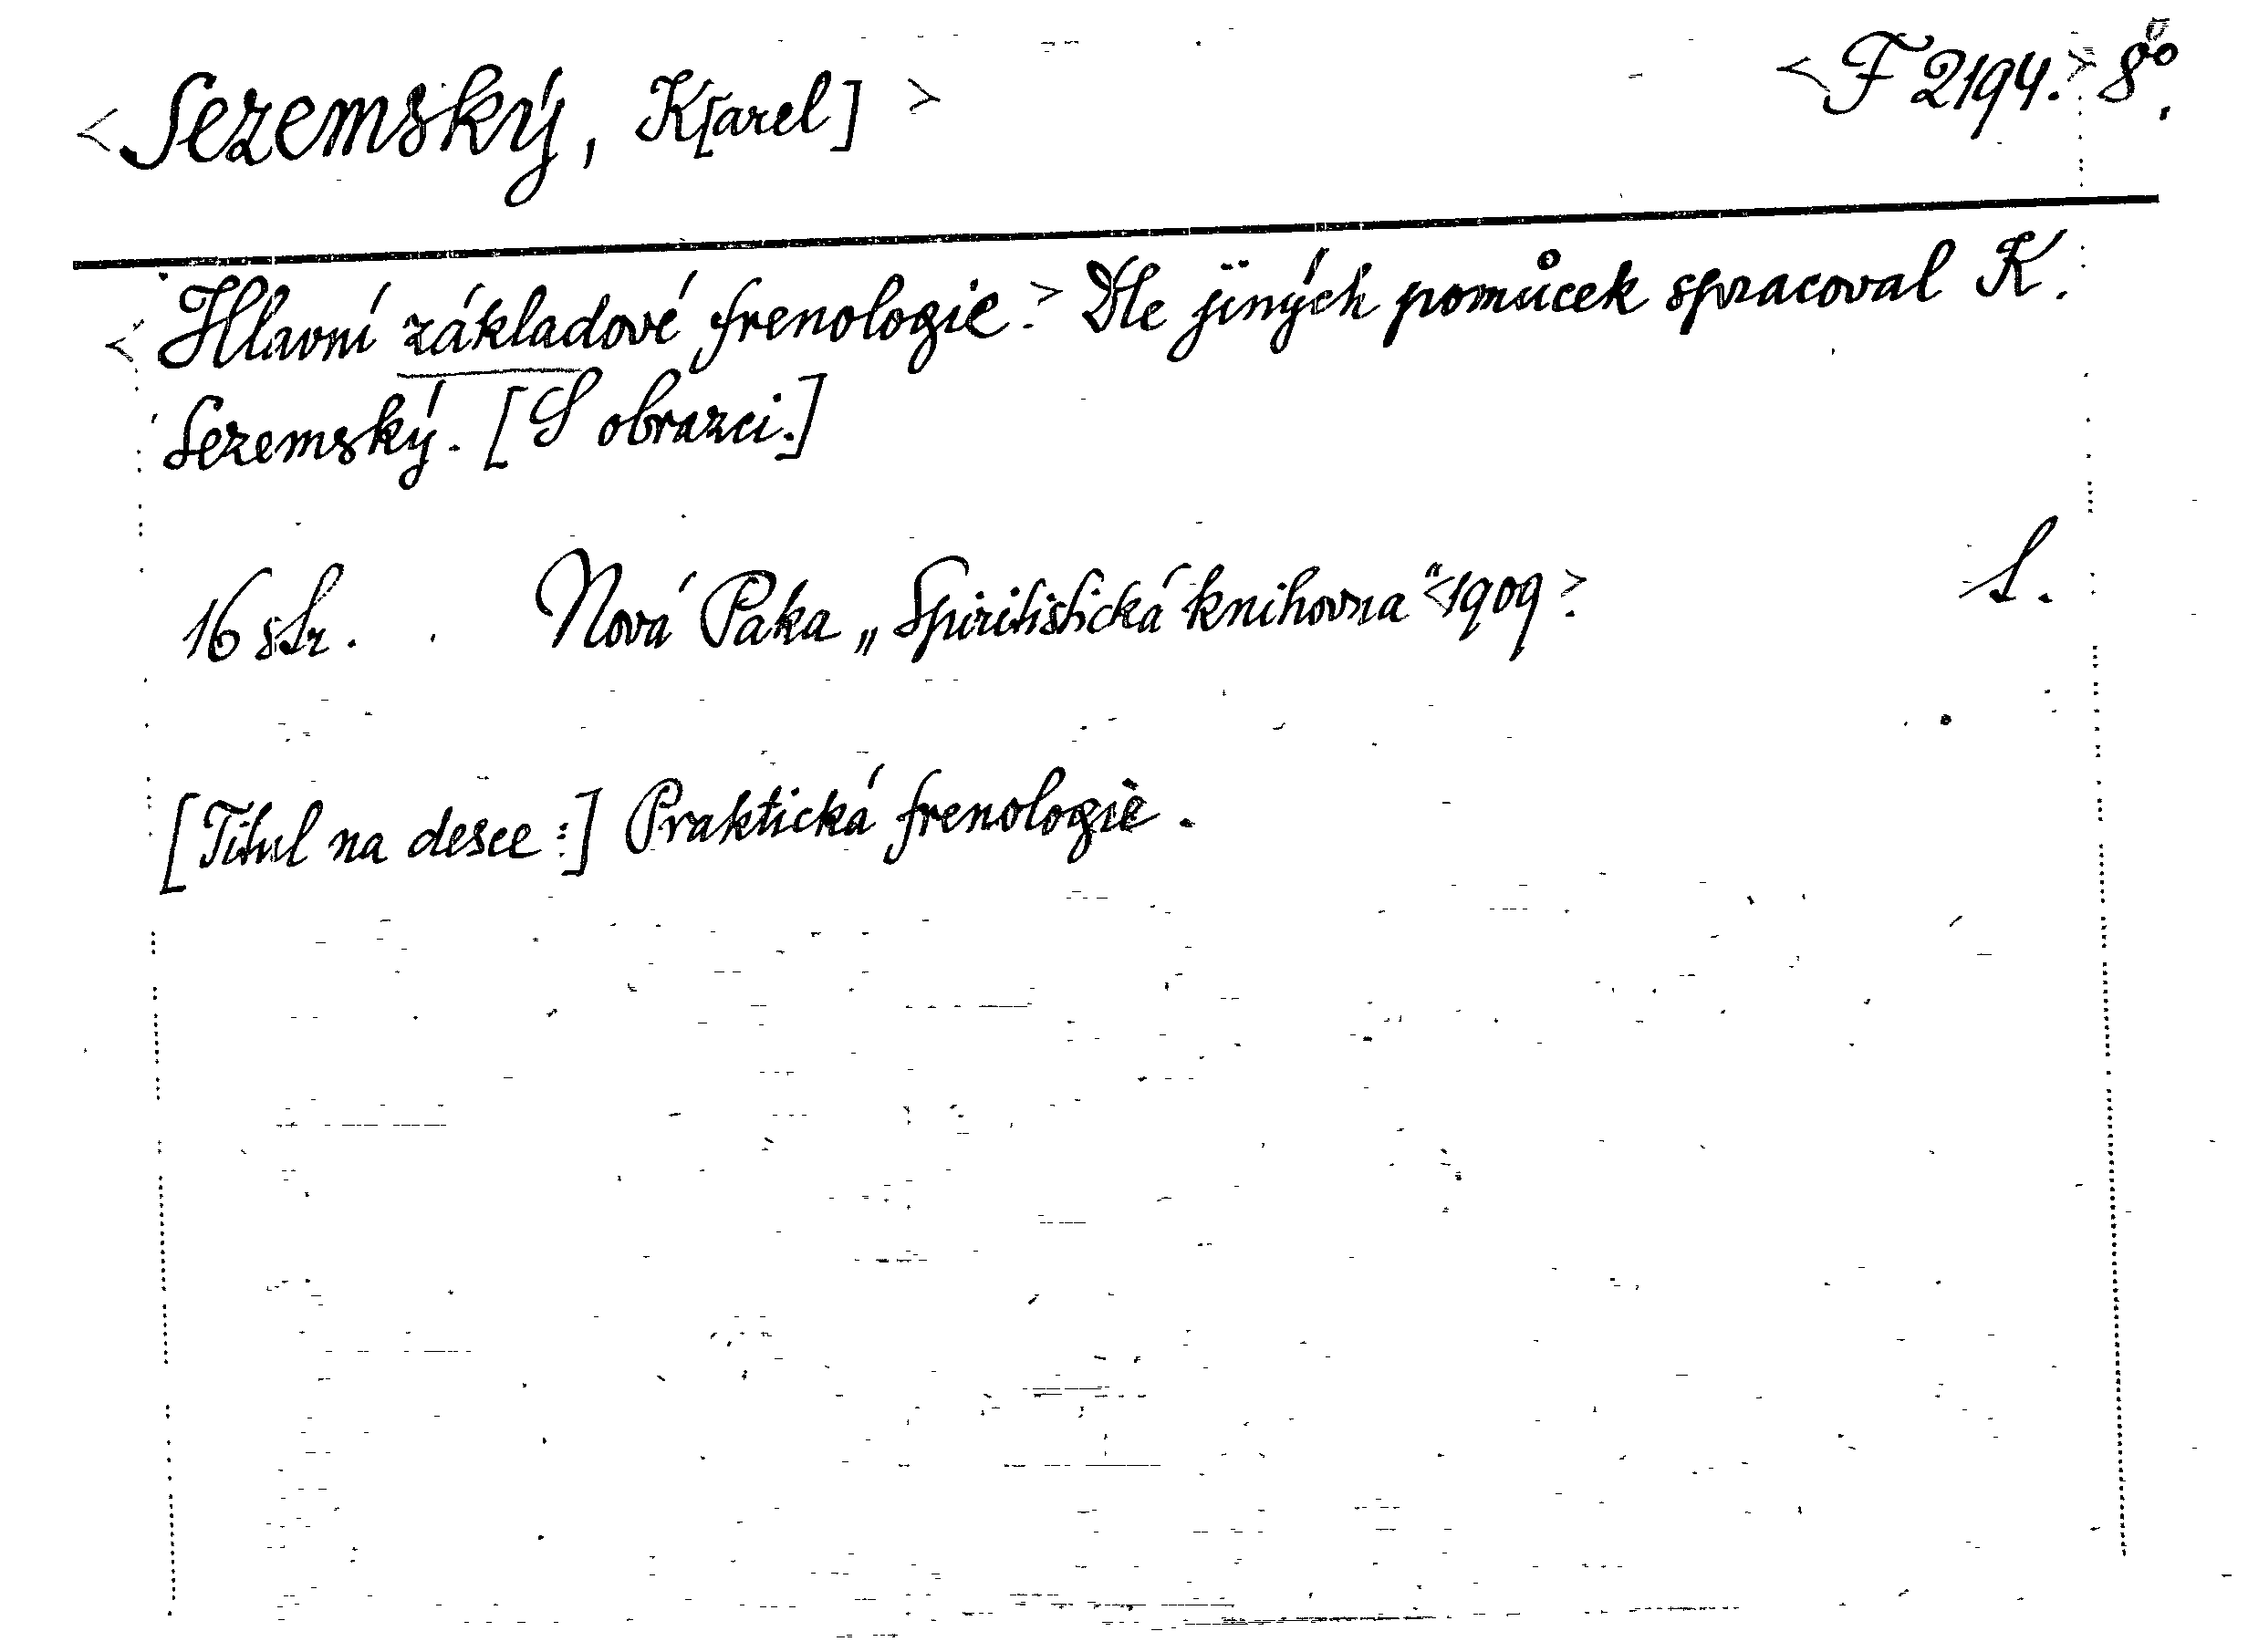 <Sezemský, K[arel]> <F 2194.> 8°.
<Hlavní základové frenologie.> Dle jiných pomůcek spracoval K.
Sezemský. [S obrazci.]
16 str. Nová Paka „Spiritistická knihovna“ <1909>. S.
[Titul na desce:] Praktická frenologie.